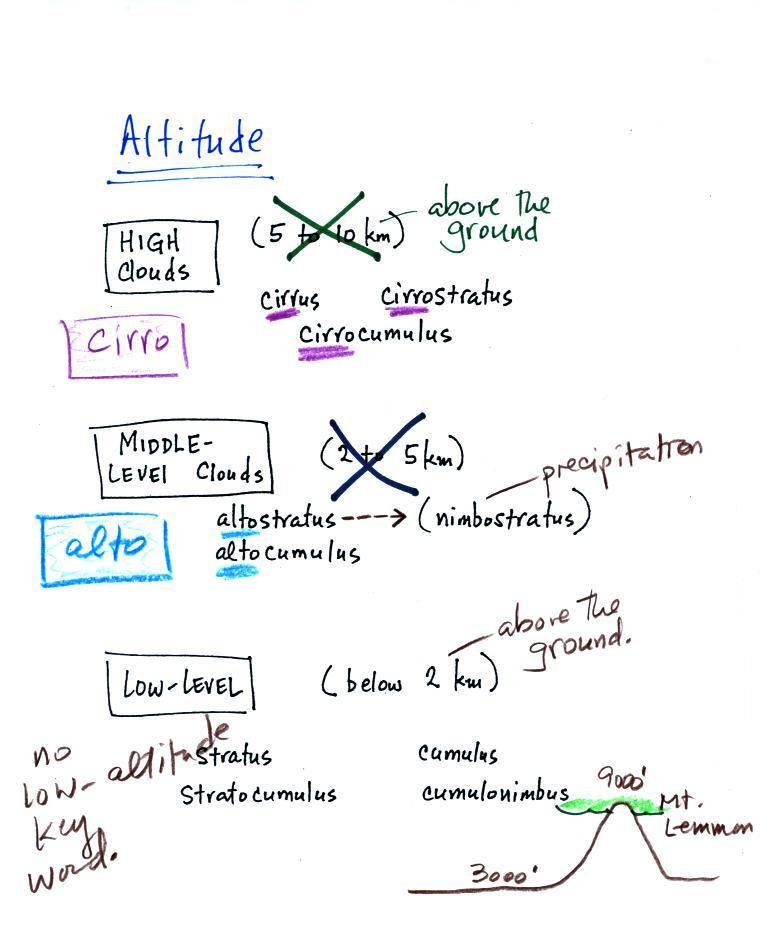 Altitude
HIGH
Clouds
(5 to 10 km)
above the
ground
cirrus
cirrostratus
cirrocumulus
cirro
MIDDLE-
LEVEL Clouds
(2 to 5 km)
precipitation
altostratus ---> (nimbostratus)
altocumulus
alto
LOW-LEVEL
(below 2 km)
above the
ground.
no
low-altitude
key
word.
stratus
cumulus
Stratocumulus
cumulonimbus
9000'
Mt.
Lemmon
3000'